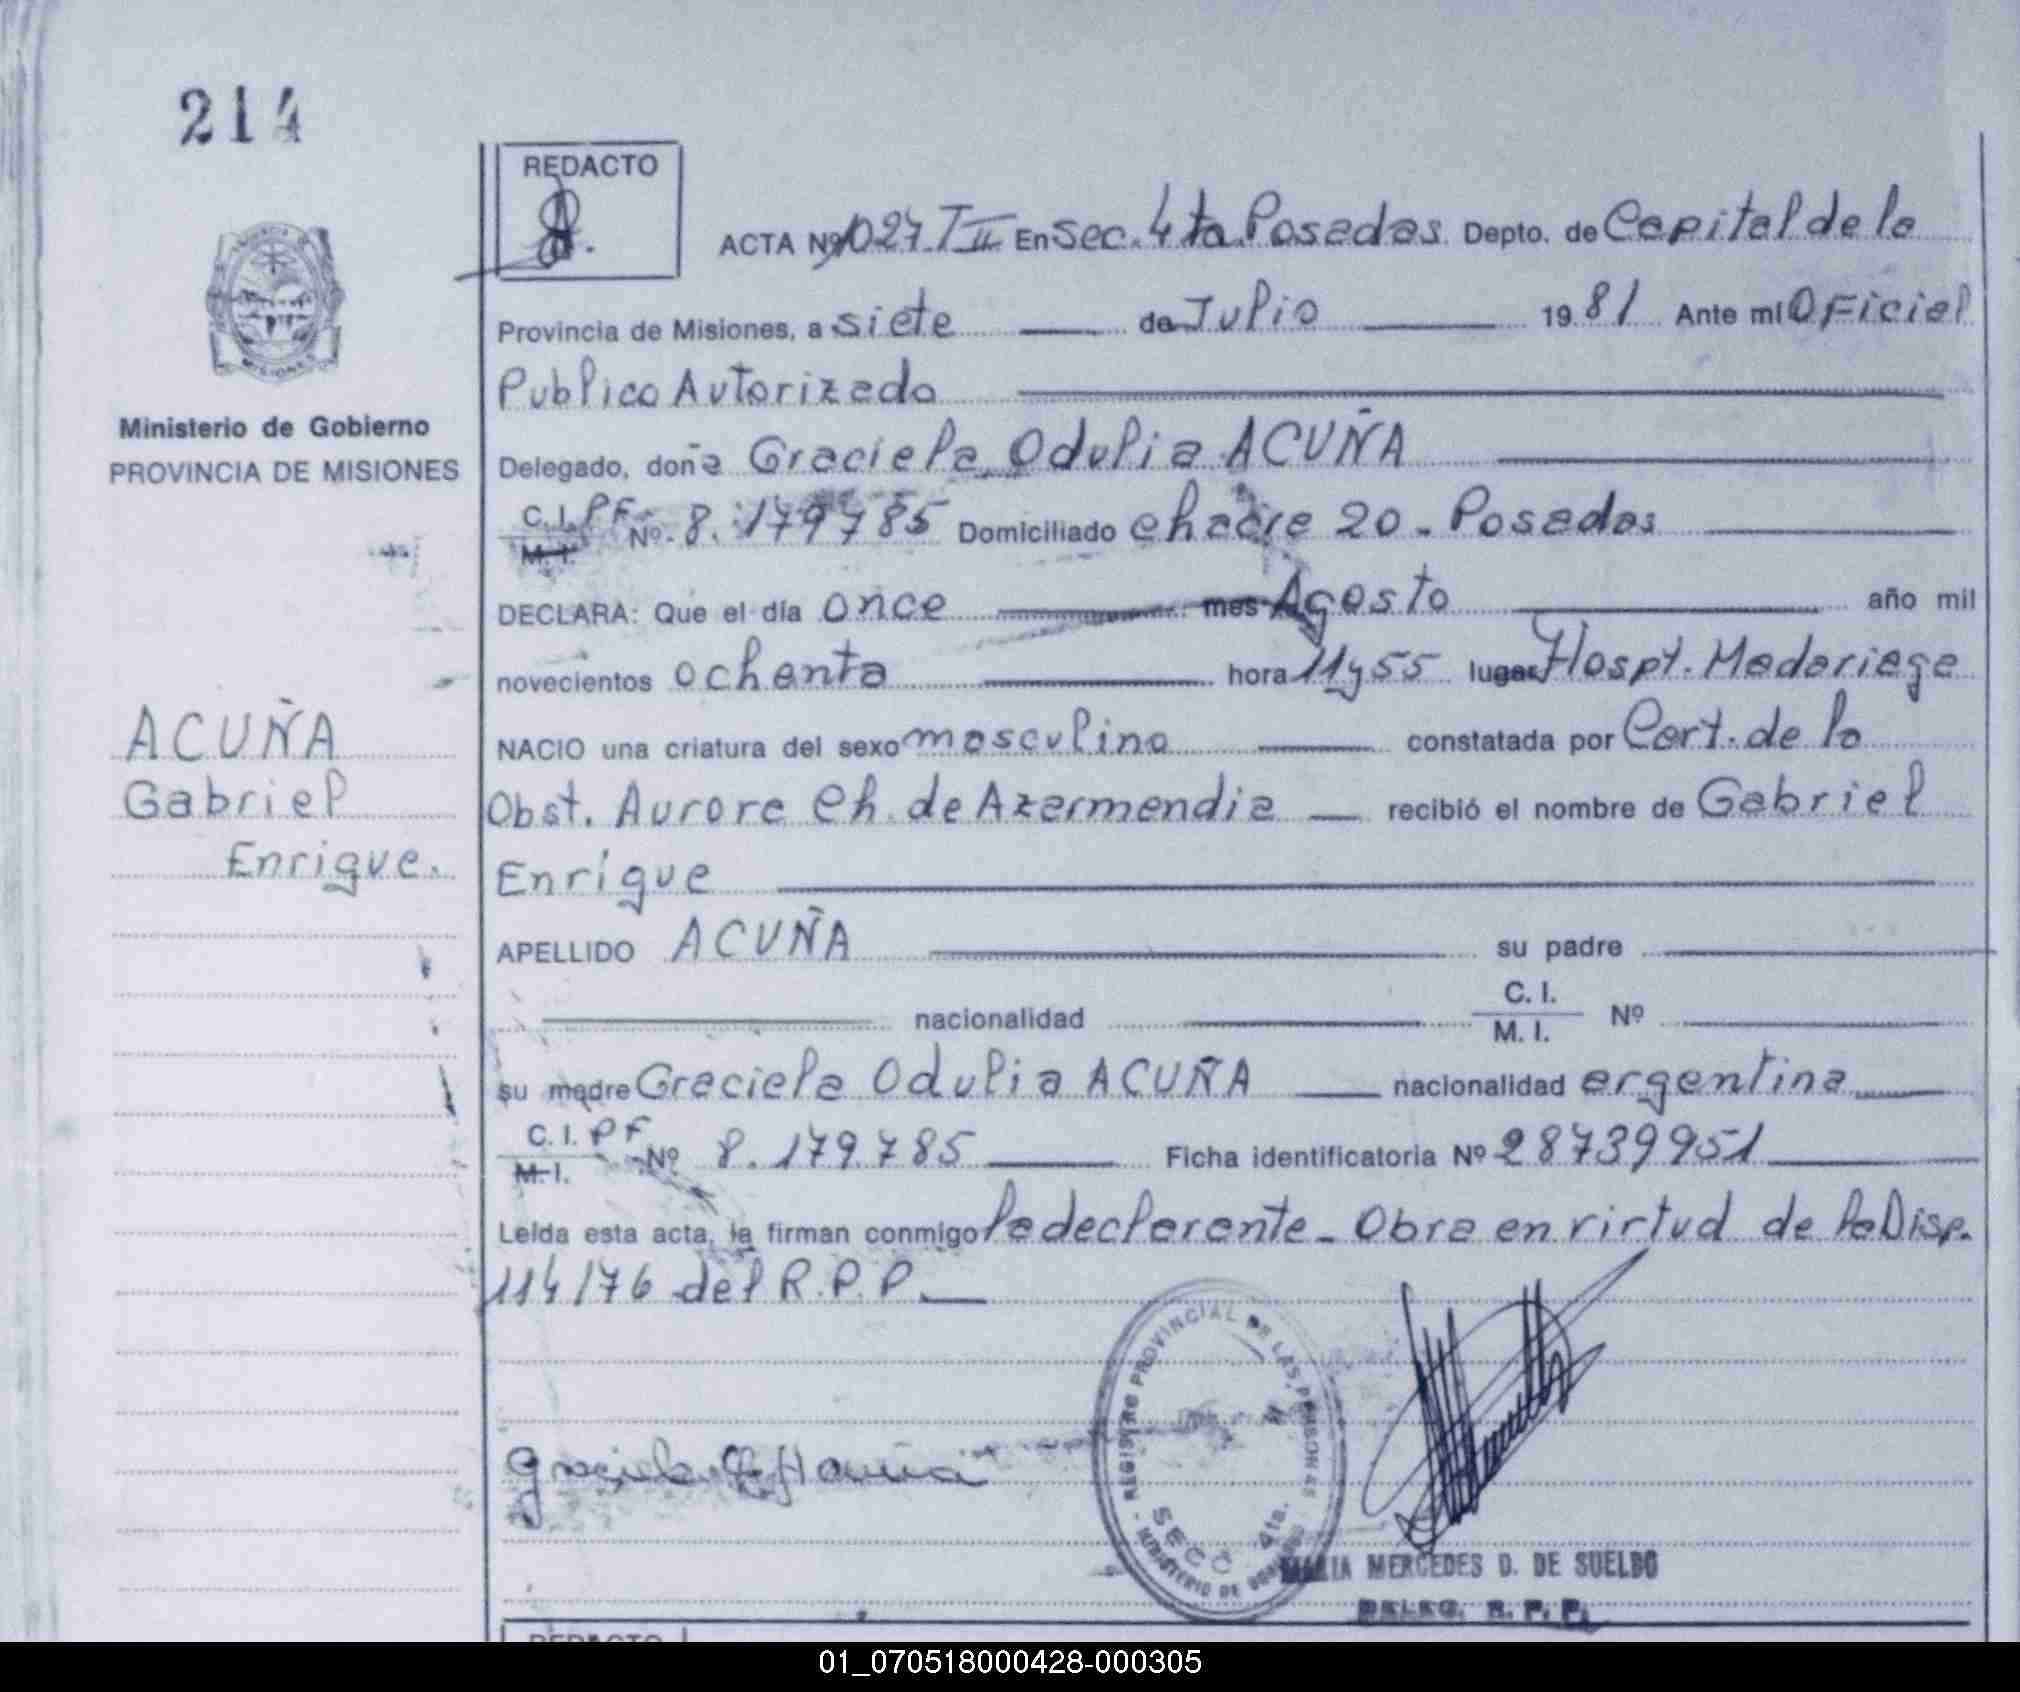 214
REDACTO
ACTA Nº 1027 T II En Sec. 4ta. Posadas Depto. de Capital de la
Provincia de Misiones, a siete de Julio 1981 Ante mi Oficial
Publico Autorizado
Ministerio de Gobierno
PROVINCIA DE MISIONES
Delegado, doña Graciela Odulia ACUÑA
C. I. PF Nº 8.179785 Domiciliado chacra 20 - Posadas
M. I.
DECLARA: Que el día once mes Agosto año mil
novecientos ochenta hora 11 y 55 lugar Hospt. Madariaga
ACUÑA
Gabriel
Enrique.
NACIO una criatura del sexo masculino constatada por Cert. de la
Obst. Aurora Ch. de Azarmendia recibió el nombre de Gabriel
Enrique
APELLIDO ACUÑA su padre
nacionalidad C. I. Nº
M. I.
su madre Graciela Odulia ACUÑA nacionalidad argentina
C. I. PF Nº 8.179.785 Ficha identificatoria Nº 28739951
M. I.
Leída esta acta, la firman conmigo la declarante - Obra en virtud de la Disp.
114/76 del R.P.P.
REGISTRO PROVINCIAL DE LAS PERSONAS
SECC 4ta.
MINISTERIO DE GOBIERNO
MARIA MERCEDES D. DE SUELDO
DELEG. R. P. P.
REDACTO
01_070518000428-000305